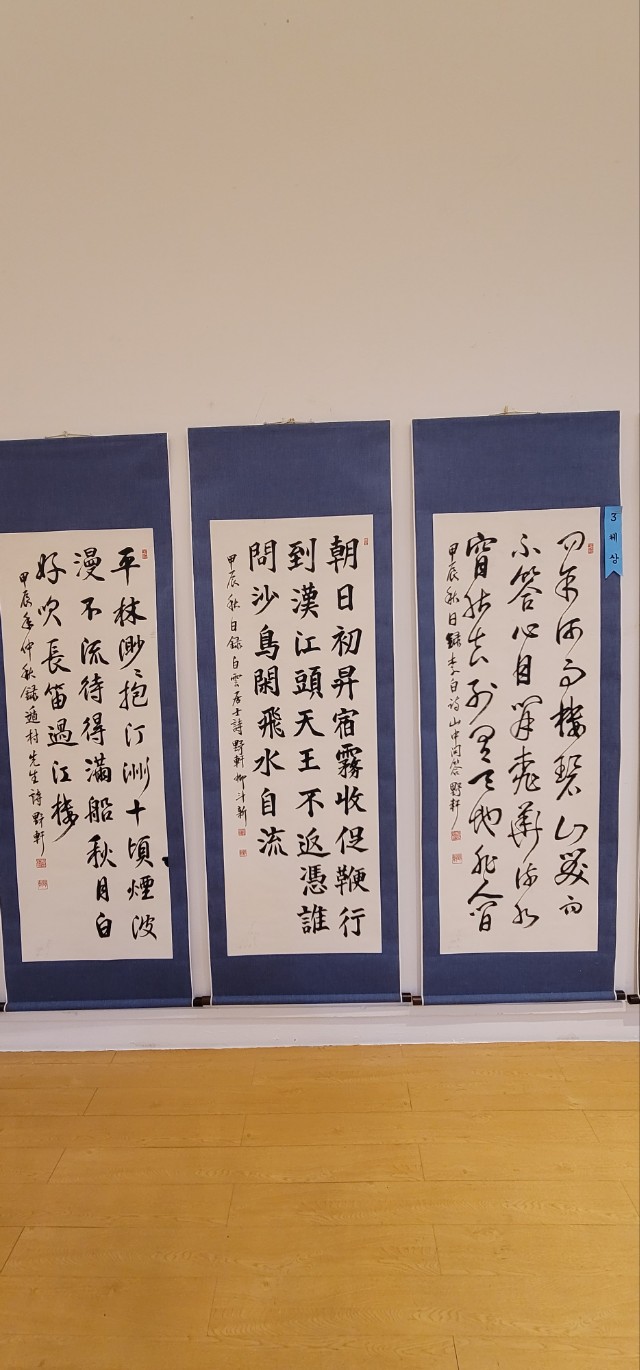 3체상
問余何事棲碧山笑而
不答心自閑桃華流水
窅然去別有天地非人間
甲辰秋日錄李白詩山中問答 野軒
朝日初昇宿霧收促鞭行
到漢江頭天王不返憑誰
問沙鳥閑飛水自流
甲辰秋日錄白雲居士詩 野軒柳斗新
平林渺〻抱汀洲十頃煙波
漫不流待得滿船秋月白
好吹長笛過江樓
甲辰年仲秋錄遁村先生詩 野軒